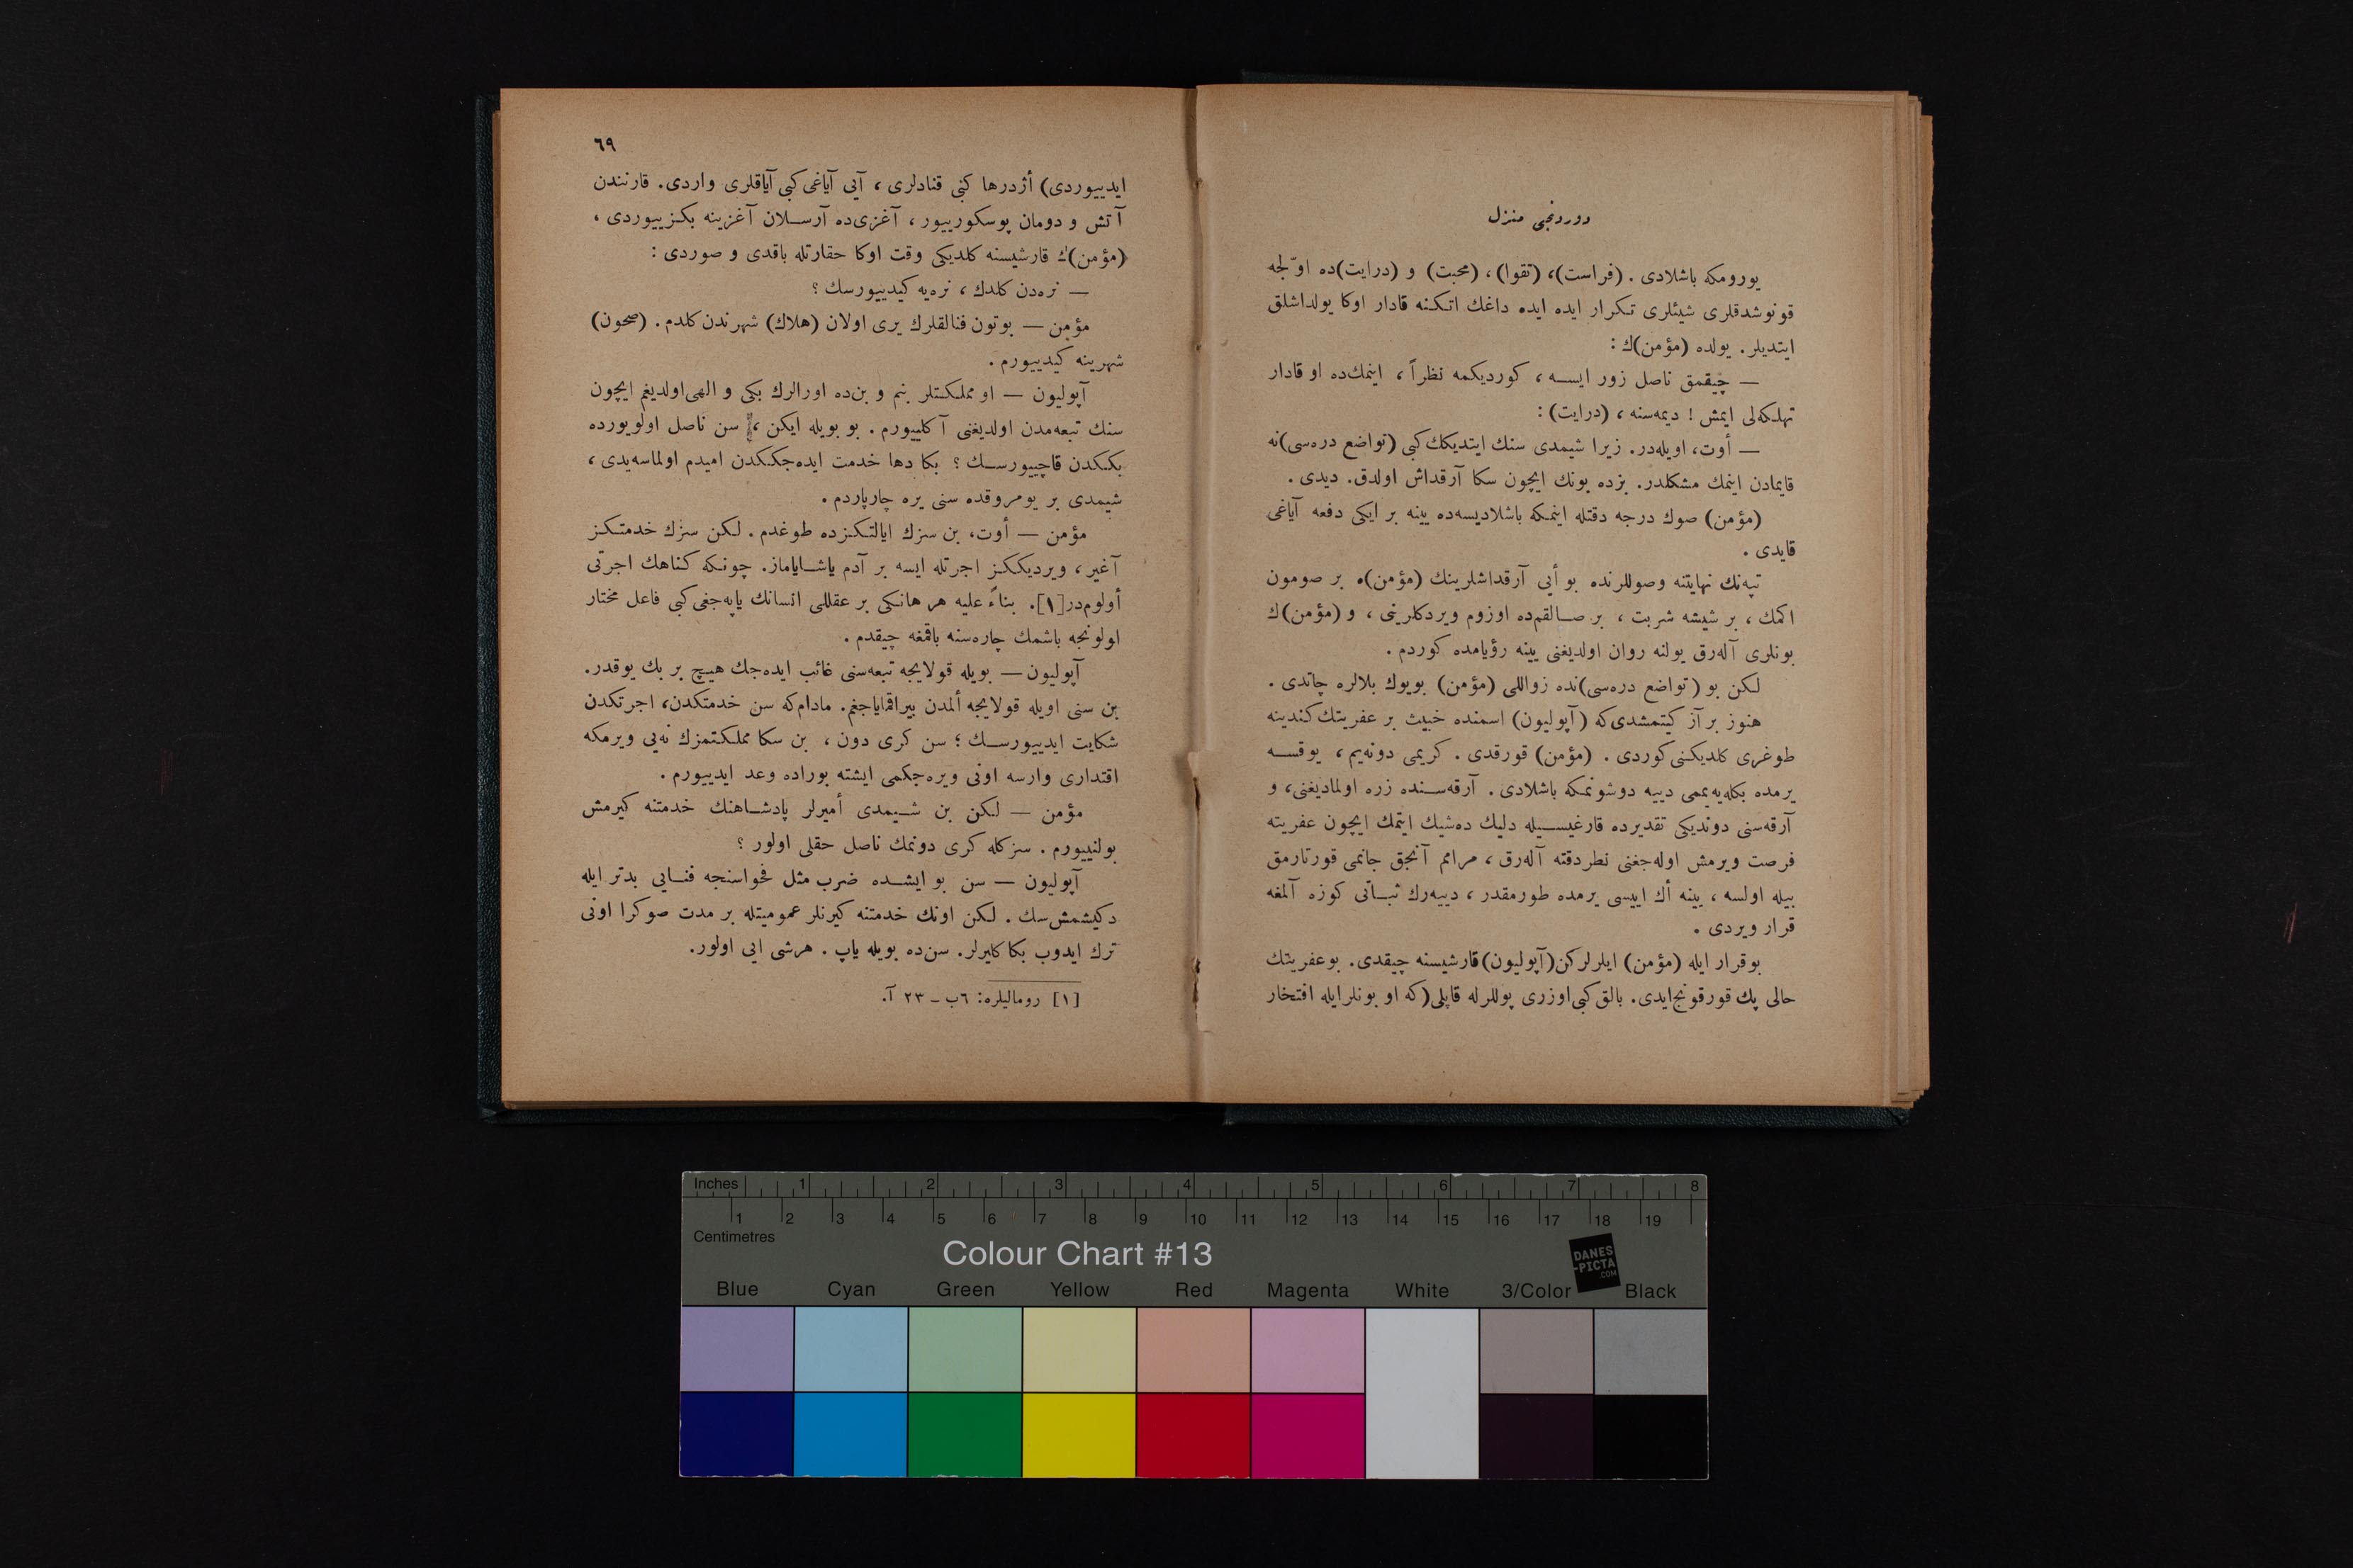 دوردنجی منزل
یورومكه باشلادی . (فراست)، (تقوا)، (محبت) و (درایت)ده اوّلجه
قونوشدقلری شیئلری تكرار ایده ایده داغك اتكنه قادار اوكا یولداشلق
ایتدیلر. یولده (مؤمن)ك :
— چیقمق ناصل زور ایسه ، كوردیكمه نظراً ، اینمك‌ده او قادار
تهلكه‌لی ایمش ! دیمه‌سنه ، (درایت) :
— أوت، اویله‌در. زیرا شیمدی سنك ایتدیكك كبی (تواضع دره‌سی)نه
قایمادن اینمك مشكلدر. بزده بونك ایچون سكا آرقداش اولدق. دیدی .
(مؤمن) صوك درجه دقتله اینمكه باشلادیسه‌ده یینه بر ایكی دفعه آیاغی
قایدی .
تپه‌نك نهایتنه وصوللرنده بو أیی آرقداشلرینك (مؤمن)ه بر صومون
اكمك ، بر شیشه شربت ، بر صالقم‌ده اوزوم ویردكلرینی ، و (مؤمن)ك
بونلری آله‌رق یولنه روان اولدیغنی یینه رؤیامده كوردم .
لكن بو (تواضع دره‌سی)نده زواللی (مؤمن) بویوك بلالره چاتدی .
هنوز بر آز كیتمشدی كه (آپولیون) اسمنده خبیث بر عفریتك كندینه
طوغری كلدیكنی كوردی . (مؤمن) قورقدی . كریمی دونه‌یم ، یوقسه
یرمده بكله‌یه‌یممی دییه دوشونمكه باشلادی . آرقه‌سنده زره اولمادیغنی، و
آرقه‌سنی دوندیكی تقدیرده قارغیسیله دلیك ده‌شیك ایتمك ایچون عفریته
فرصت ویرمش اوله‌جغنی نظر دقته آله‌رق ، مرامم آنجق جانمی قورتارمق
بیله اولسه ، یینه أك اییسی یرمده طورمقدر ، دییه‌رك ثباتی كوزه آلمغه
قرار ویردی .
بوقرار ایله (مؤمن) ایلرلركن(آپولیون)قارشیسنه چیقدی. بوعفریتك
حالی پك قورقونج‌ایدی. بالق كبی اوزری پوللرله قاپلی(كه او بونلرایله افتخار
٦٩
ایدییوردی) أژدرها كبی قنادلری ، آیی آیاغی كبی آیاقلری واردی. قارنندن
آتش و دومان پوسكورییور ، آغزی‌ده آرسلان آغزینه بكزییوردی ،
(مؤمن)ك قارشیسنه كلدیكی وقت اوكا حقارتله باقدی و صوردی :
— نره‌دن كلدك ، نره‌یه كیدییورسك ؟
مؤمن — بوتون فنالقلرك یری اولان (هلاك) شهرندن كلدم. (صحون)
شهرینه كیدییورم .
آپولیون — او مملكتلر بنم و بن‌ده اورالرك بكی و الهی‌اولدیغم ایچون
سنك تبعه‌مدن اولدیغنی آكلییورم . بو بویله ایكن ، سن ناصل اولویورده
بككدن قاچییورسك ؟ بكا دها خدمت ایده‌جككدن امیدم اولماسه‌یدی ،
شیمدی بر یومروقده سنی یره چارپاردم .
مؤمن — أوت، بن سزك ایالتكزده طوغدم . لكن سزك خدمتكز
آغیر ، ویردیككز اجرتله ایسه بر آدم یاشایاماز. چونكه كناهك اجرتی
أولوم‌در[١]. بناءً علیه هر هانكی بر عقللی انسانك یاپه‌جغی كبی فاعل مختار
اولونجه باشمك چاره‌سنه باقمغه چیقدم .
آپولیون — بویله قولایجه تبعه‌سنی غائب ایده‌جك هیچ بر بك یوقدر.
بن سنی اویله قولایجه ألمدن بیراقمایاجغم. مادام‌كه سن خدمتكدن، اجرتكدن
شكایت ایدییورسك ؛ سن كری دون ، بن سكا مملكتمزك نه‌یی ویرمكه
اقتداری وارسه اونی ویره‌جكمی ایشته بوراده وعد ایدییورم .
مؤمن — لكن بن شیمدی أمیرلر پادشاهنك خدمتنه كیرمش
بولنییورم . سزكله كری دونمك ناصل حقلی اولور ؟
آپولیون — سن بو ایشده ضرب مثل فحواسنجه فنایی بدتر ایله
دكیشمش‌سك . لكن اونك خدمتنه كیرنلر عمومیتله بر مدت صوكرا اونی
ترك ایدوب بكا كلیرلر. سن‌ده بویله یاپ . هرشی ایی اولور.
[١] رومالیلره: ٦ب ـ ٢٣ آ.
Inches 1 2 3 4 5 6 7 8
1 2 3 4 5 6 7 8 9 10 11 12 13 14 15 16 17 18 19
Centimetres
Colour Chart #13
DANES
-PICTA
.COM
Blue Cyan Green Yellow Red Magenta White 3/Color Black